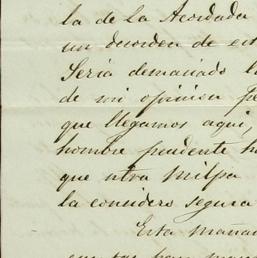 la de la Acordada
un desorden de es
Seria demaciado l
de mi opinion pe
que llegamos aqui,
hombre prudente h
que otra Milpa
la considero segura
Esta mañana